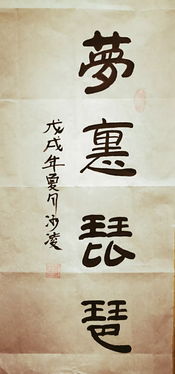 夢裏琵琶
戊戌年夏月沙凌